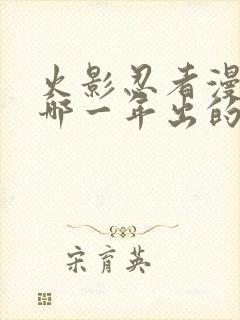 火影忍者漫
哪一年出的
宋育英